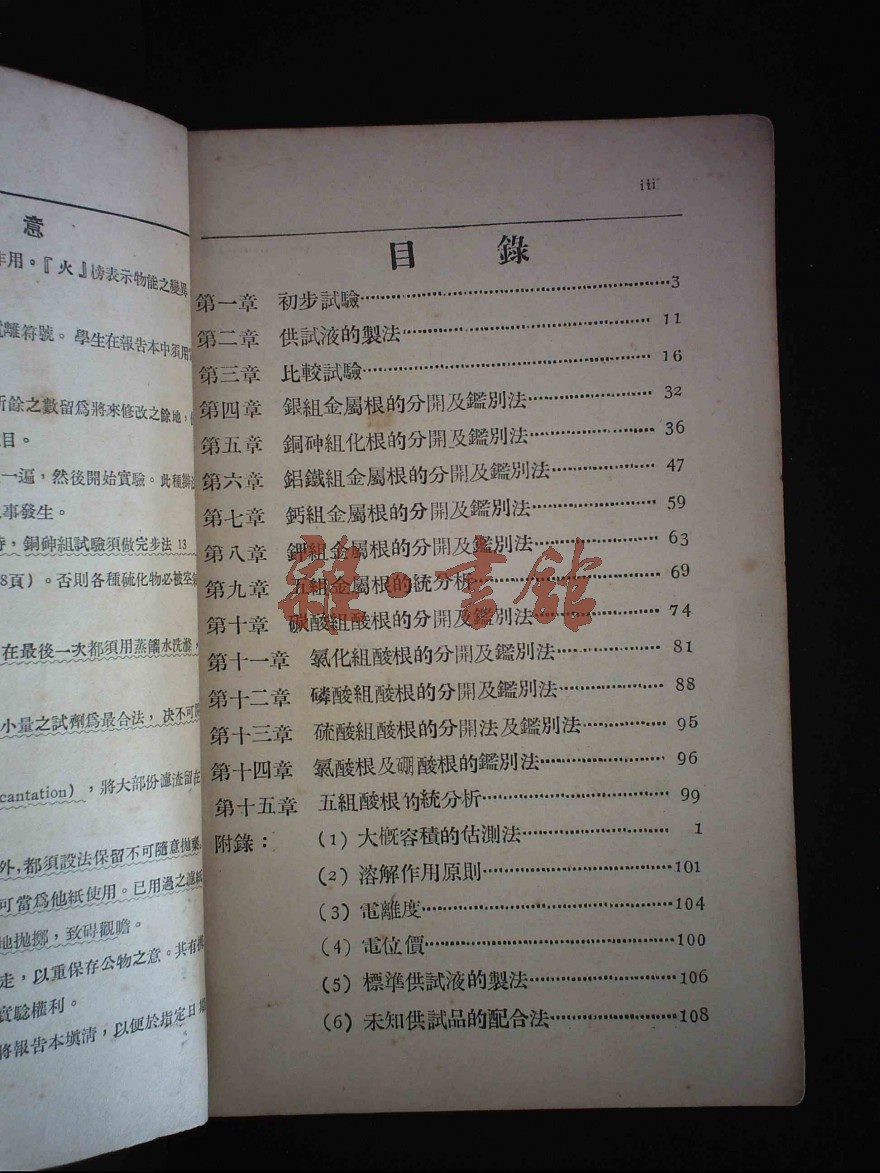 意
作用。『火』傍表示物能之變異
電離符號。學生在報告本中須用
所餘之數留爲將來修改之餘地,
目。
一遍,然後開始實驗。此種辦法
事發生。
時,銅砷組試驗須做完步法 13
8頁)。否則各種硫化物必被
在最後一次都須用蒸餾水洗滌,
小量之試劑爲最合法,决不可
cantation),將大部份濾渣留在
外,都須設法保留不可隨意拋棄
可當爲他紙使用。已用過之濾紙
地拋擲,致碍觀瞻。
走,以重保存公物之意。共有
實驗權利。
將報告本塡清,以便於指定日
iii
目錄
第一章 初步試驗……3
第二章 供試液的製法……11
第三章 比較試驗……16
第四章 銀組金屬根的分開及鑑別法……32
第五章 銅砷組化根的分開及鑑別法……36
第六章 鋁鐵組金屬根的分開及鑑別法……47
第七章 鈣組金屬根的分開及鑑別法……59
第八章 鉀組金屬根的分開及鑑別法……63
第九章 五組金屬根的統分析……69
第十章 碳酸組酸根的分開及鑑別法……74
第十一章 氯化組酸根的分開及鑑別法……81
第十二章 磷酸組酸根的分開及鑑別法……88
第十三章 硫酸組酸根的分開法及鑑別法……95
第十四章 氯酸根及硼酸根的鑑別法……96
第十五章 五組酸根的統分析……99
附錄: (1) 大槪容積的估測法……1
(2) 溶解作用原則……101
(3) 電離度……104
(4) 電位價……100
(5) 標準供試液的製法……106
(6) 未知供試品的配合法……108
雜·書館